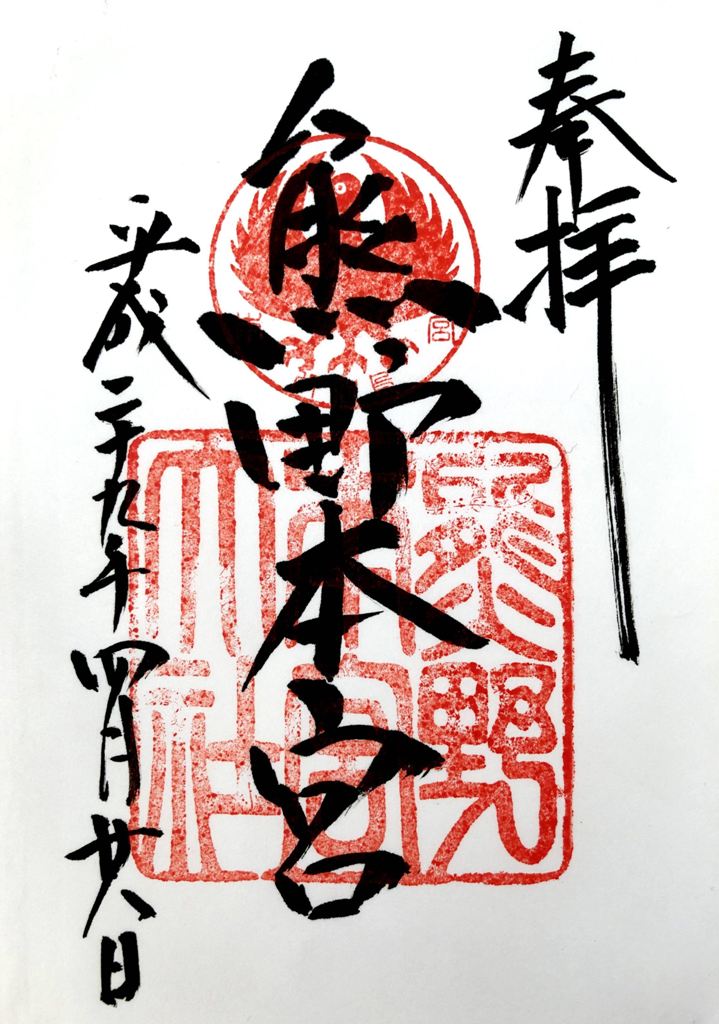 奉拝
熊野本宮
平成二十九年四月廿八日
熊野
本宮
大社